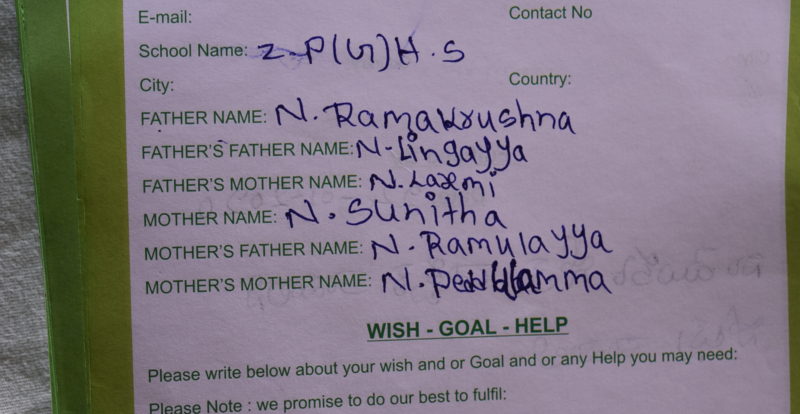 E-mail: Contact No
School Name: Z-P(G)H.S
City: Country:
FATHER NAME: N. Ramakrushna
FATHER'S FATHER NAME: N-Lingayya
FATHER'S MOTHER NAME: N. Laxmi
MOTHER NAME: N. Sunitha
MOTHER'S FATHER NAME: N. Ramulayya
MOTHER'S MOTHER NAME: N.
WISH - GOAL - HELP
Please write below about your wish and or Goal and or any Help you may need:
Please Note : we promise to do our best to fulfil: